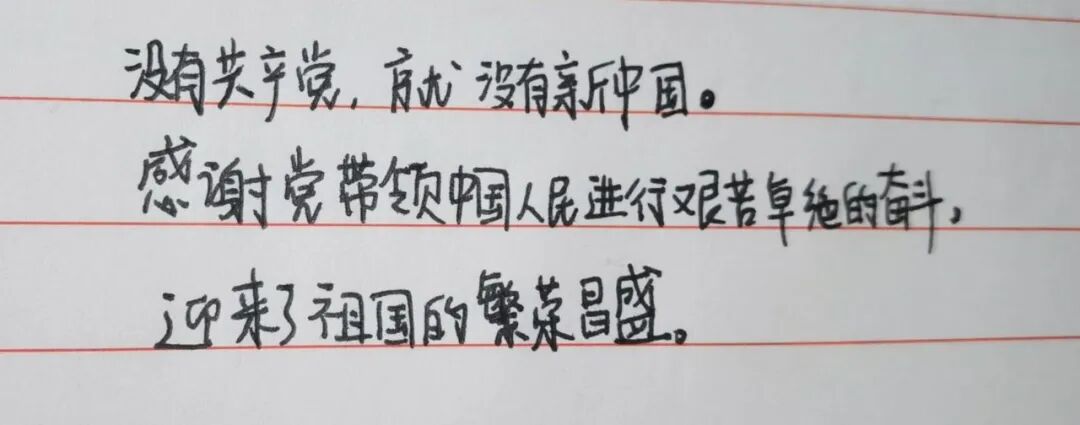 没有共产党，就没有新中国。
感谢党带领中国人民进行艰苦卓绝的奋斗，
迎来了祖国的繁荣昌盛。